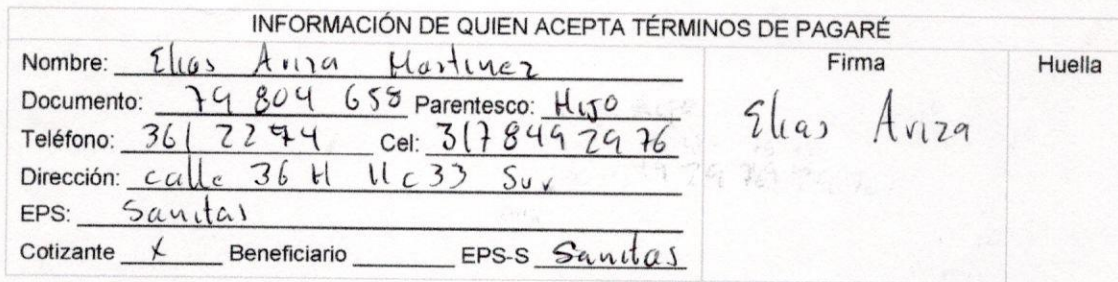 INFORMACIÓN DE QUIEN ACEPTA TÉRMINOS DE PAGARÉ
Nombre: Elias Ariza Martinez
Firma
Huella
Documento: 79 804 658 Parentesco: Hijo
Elias Ariza
Teléfono: 361 2274 Cel: 317 849 2976
Dirección: calle 36 H 11c 33 Sur
EPS: Sanitas
Cotizante X Beneficiario EPS-S Sanitas